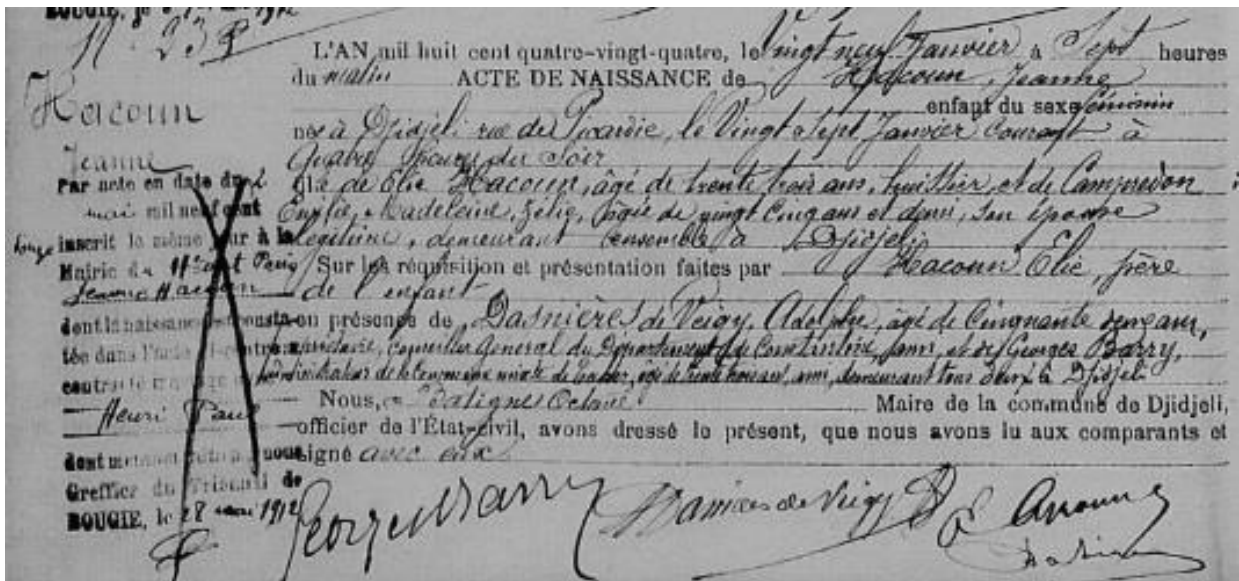 BOUGIE, le
1912
N° 23
Hacoun
Jeanne
Par acte en date du 2
mai mil neuf cent
inscrit le même jour à la
Mairie du 11e arrt Paris
Jeanne Hacoun
dont la naissance consta-
tée dans l'acte ci-contre a
contracté mariage
Henri Paul
dont mention
Greffier du Tribunal de
BOUGIE, le 28 mai 1912
L'AN mil huit cent quatre-vingt-quatre, le Vingt neuf Janvier à Sept heures
du matin ACTE DE NAISSANCE de Hacoun, Jeanne
enfant du sexe féminin
née à Djidjeli rue de Picardie, le Vingt Sept Janvier Courant à
Quatre heures du Soir
de Elie Hacoun, âgé de trente trois ans, huissier, et de Campredon
Emilie, Madeleine, Zélie, âgée de vingt Cinq ans et demi, son épouse
légitime, demeurant ensemble à Djidjeli
Sur les réquisition et présentation faites par Hacoun Elie, père
de l'enfant
en présence de Dasnières de Veigy, Adolphe, âgé de Cinquante ans,
Conseiller Général du Département de Constantine, ami, et de Georges Barry,
administrateur de la commune mixte de âgé de trente ans, ami, demeurant tous deux à Djidjeli
Nous, Batignes Octave Maire de la commune de Djidjeli,
officier de l'État-civil, avons dressé le présent, que nous avons lu aux comparants et
signé avec eux.
Georges Barry Dasnières de Veigy E Hacoun